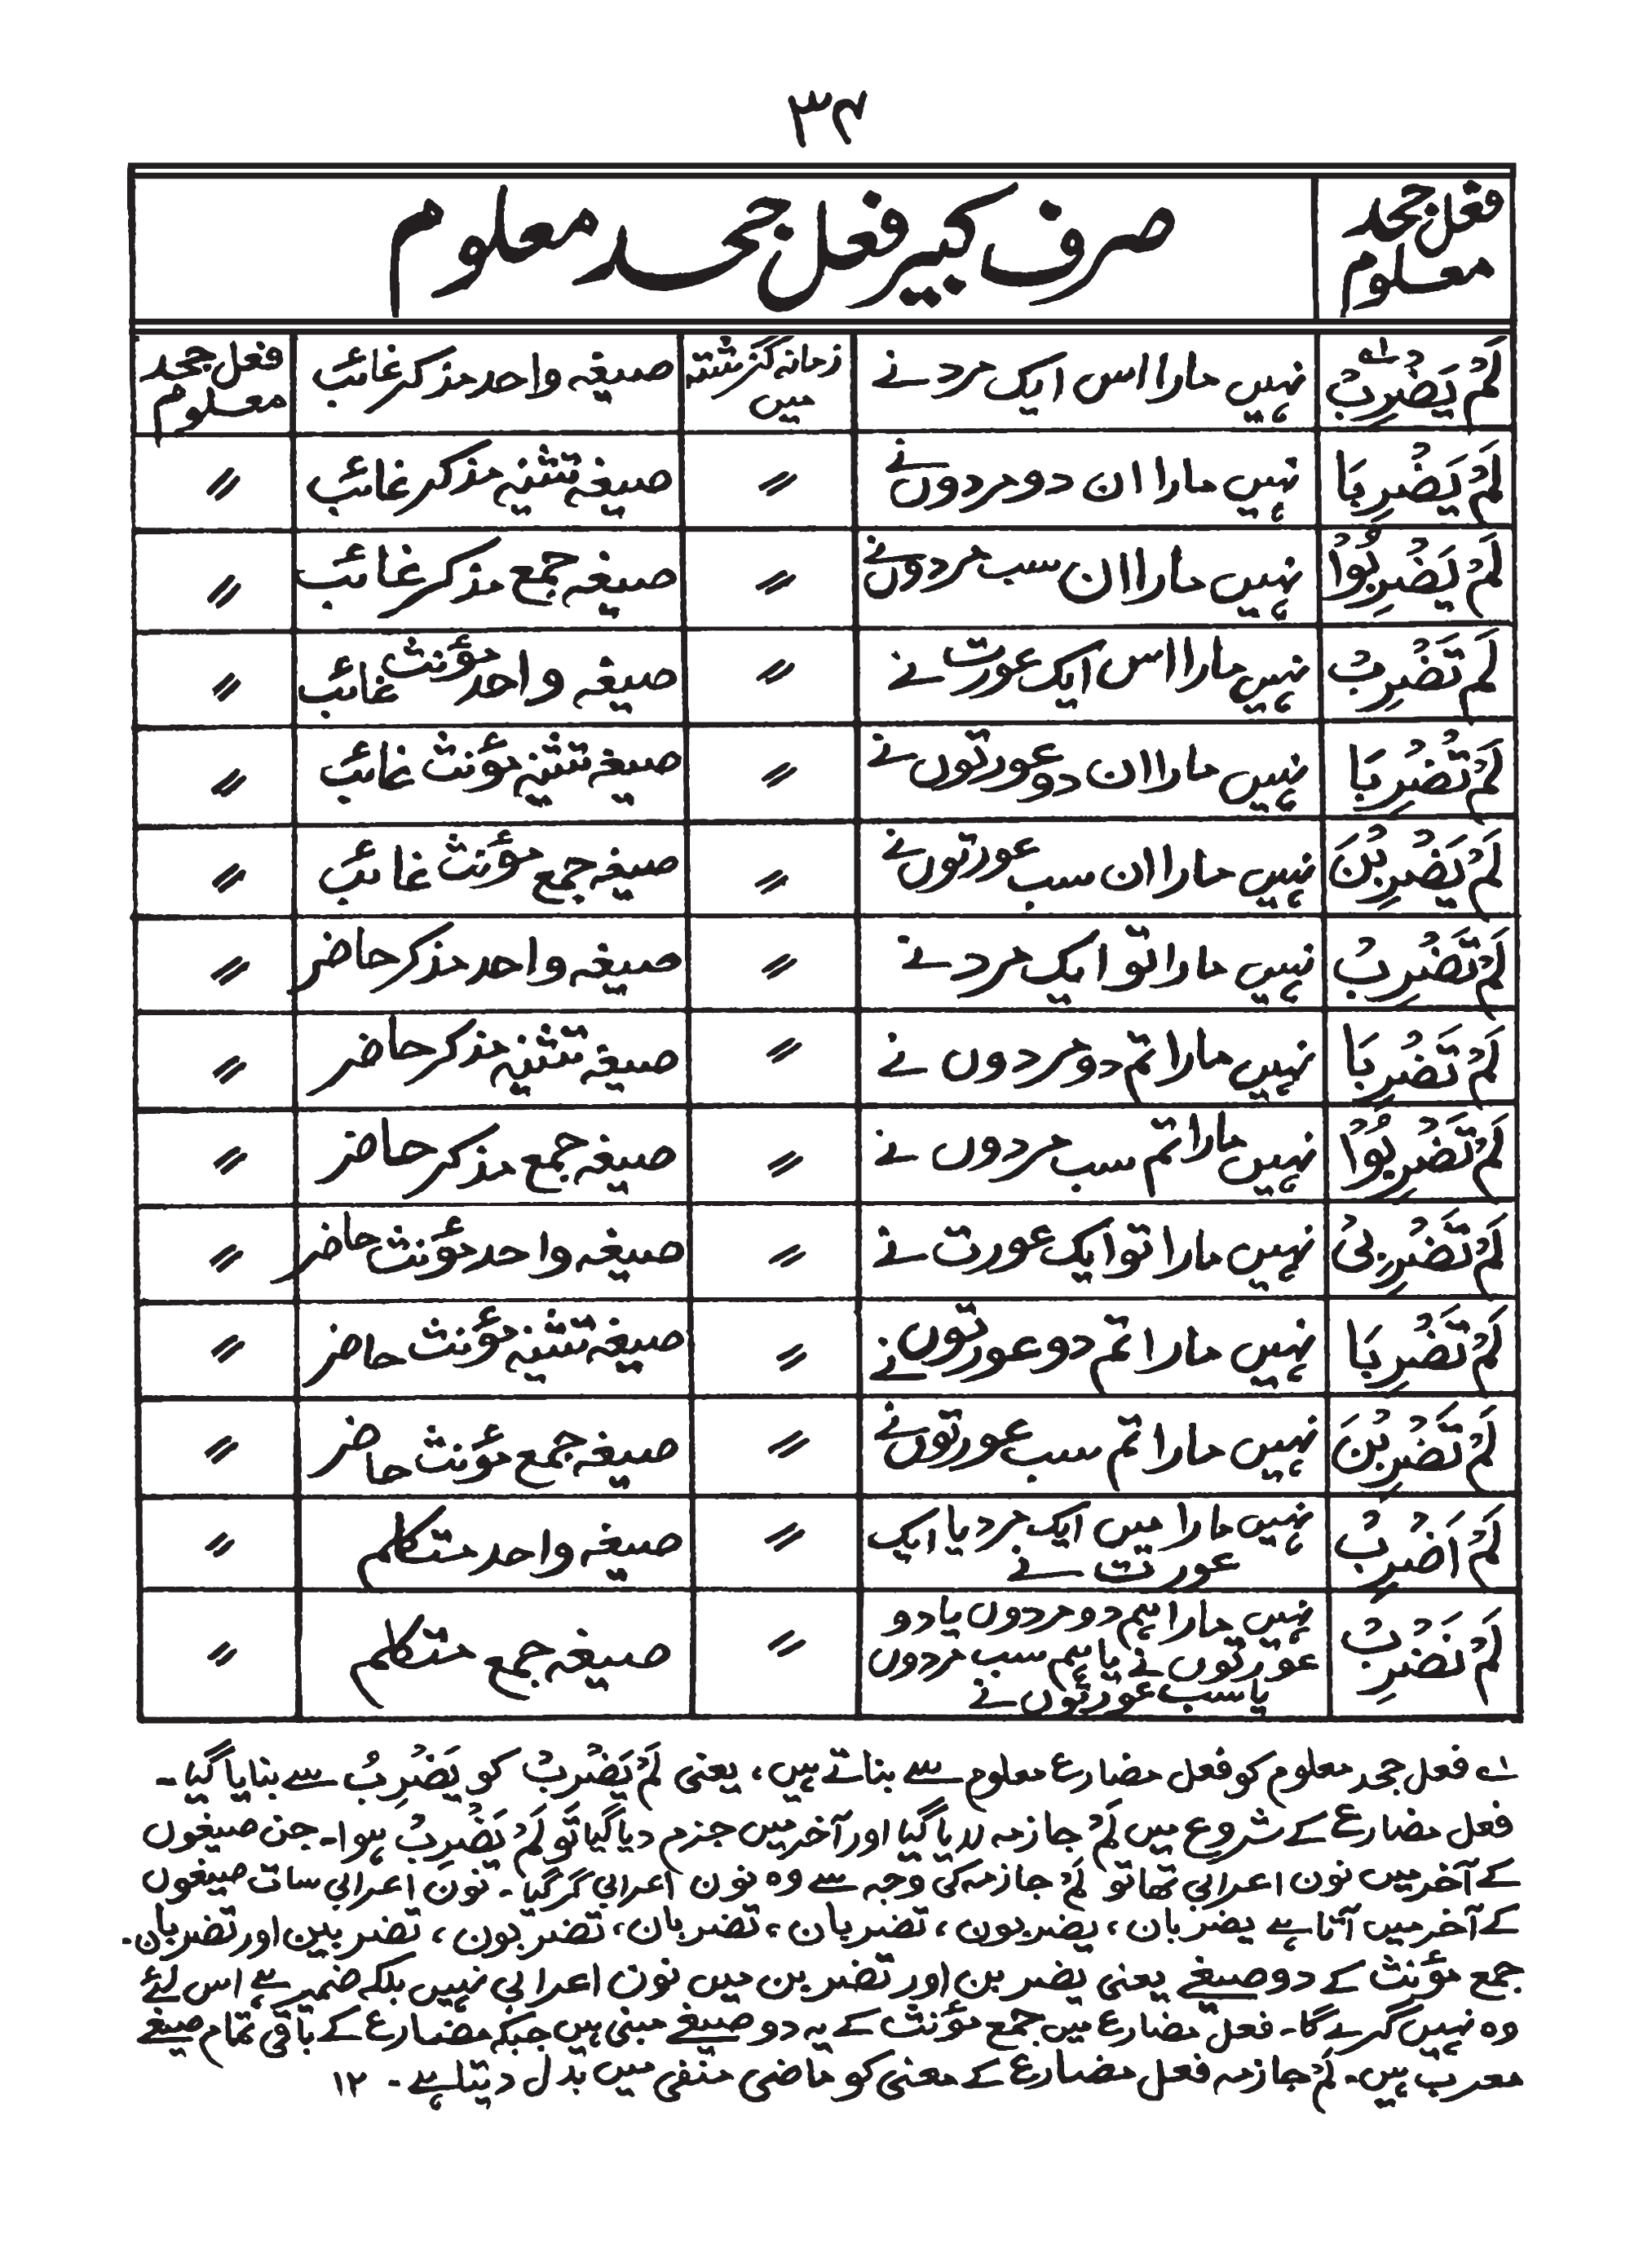 ۳۴
فعل جحد معلوم صرف کبیر فعل جحد معلوم
لَمْ یَضْرِبْ ۱؎ نہیں مارا اس ایک مرد نے زمانہ گزشتہ میں صیغہ واحد مذکر غائب فعل جحد معلوم
لَمْ یَضْرِبَا نہیں مارا ان دو مردوں نے 〃 صیغہ تثنیہ مذکر غائب 〃
لَمْ یَضْرِبُوْا نہیں مارا ان سب مردوں نے 〃 صیغہ جمع مذکر غائب 〃
لَمْ تَضْرِبْ نہیں مارا اس ایک عورت نے 〃 صیغہ واحد مؤنث غائب 〃
لَمْ تَضْرِبَا نہیں مارا ان دو عورتوں نے 〃 صیغہ تثنیہ مؤنث غائب 〃
لَمْ یَضْرِبْنَ نہیں مارا ان سب عورتوں نے 〃 صیغہ جمع مؤنث غائب 〃
لَمْ تَضْرِبْ نہیں مارا تو ایک مرد نے 〃 صیغہ واحد مذکر حاضر 〃
لَمْ تَضْرِبَا نہیں مارا تم دو مردوں نے 〃 صیغہ تثنیہ مذکر حاضر 〃
لَمْ تَضْرِبُوْا نہیں مارا تم سب مردوں نے 〃 صیغہ جمع مذکر حاضر 〃
لَمْ تَضْرِبِیْ نہیں مارا تو ایک عورت نے 〃 صیغہ واحد مؤنث حاضر 〃
لَمْ تَضْرِبَا نہیں مارا تم دو عورتوں نے 〃 صیغہ تثنیہ مؤنث حاضر 〃
لَمْ تَضْرِبْنَ نہیں مارا تم سب عورتوں نے 〃 صیغہ جمع مؤنث حاضر 〃
لَمْ اَضْرِبْ نہیں مارا میں ایک مرد یا ایک عورت نے 〃 صیغہ واحد متکلم 〃
لَمْ نَضْرِبْ نہیں مارا ہم دو مردوں یا دو عورتوں نے یا ہم سب مردوں یا سب عورتوں نے 〃 صیغہ جمع متکلم 〃
۱؎ فعل جحد معلوم کو فعل مضارع معلوم سے بناتے ہیں، یعنی لَمْ یَضْرِبْ کو یَضْرِبُ سے بنایا گیا۔
فعل مضارع کے شروع میں لَمْ جازمہ لایا گیا اور آخر میں جزم دیا گیا تو لَمْ یَضْرِبْ ہوا۔ جن صیغوں
کے آخر میں نون اعرابی تھا تو لَمْ جازمہ کی وجہ سے وہ نون اعرابی گر گیا۔ نون اعرابی سات صیغوں
کے آخر میں آتا ہے یضربان، یضربون، تضربان، تضربان، تضربون، تضربین اور تضربان۔
جمع مؤنث کے دو صیغے یعنی یضربن اور تضربن میں نون اعرابی نہیں بلکہ ضمیر ہے اس لئے
وہ نہیں گرے گا۔ فعل مضارع میں جمع مؤنث کے یہ دو صیغے مبنی ہیں جبکہ مضارع کے باقی تمام صیغے
معرب ہیں۔ لَمْ جازمہ فعل مضارع کے معنی کو ماضی منفی میں بدل دیتا ہے۔ ۱۲